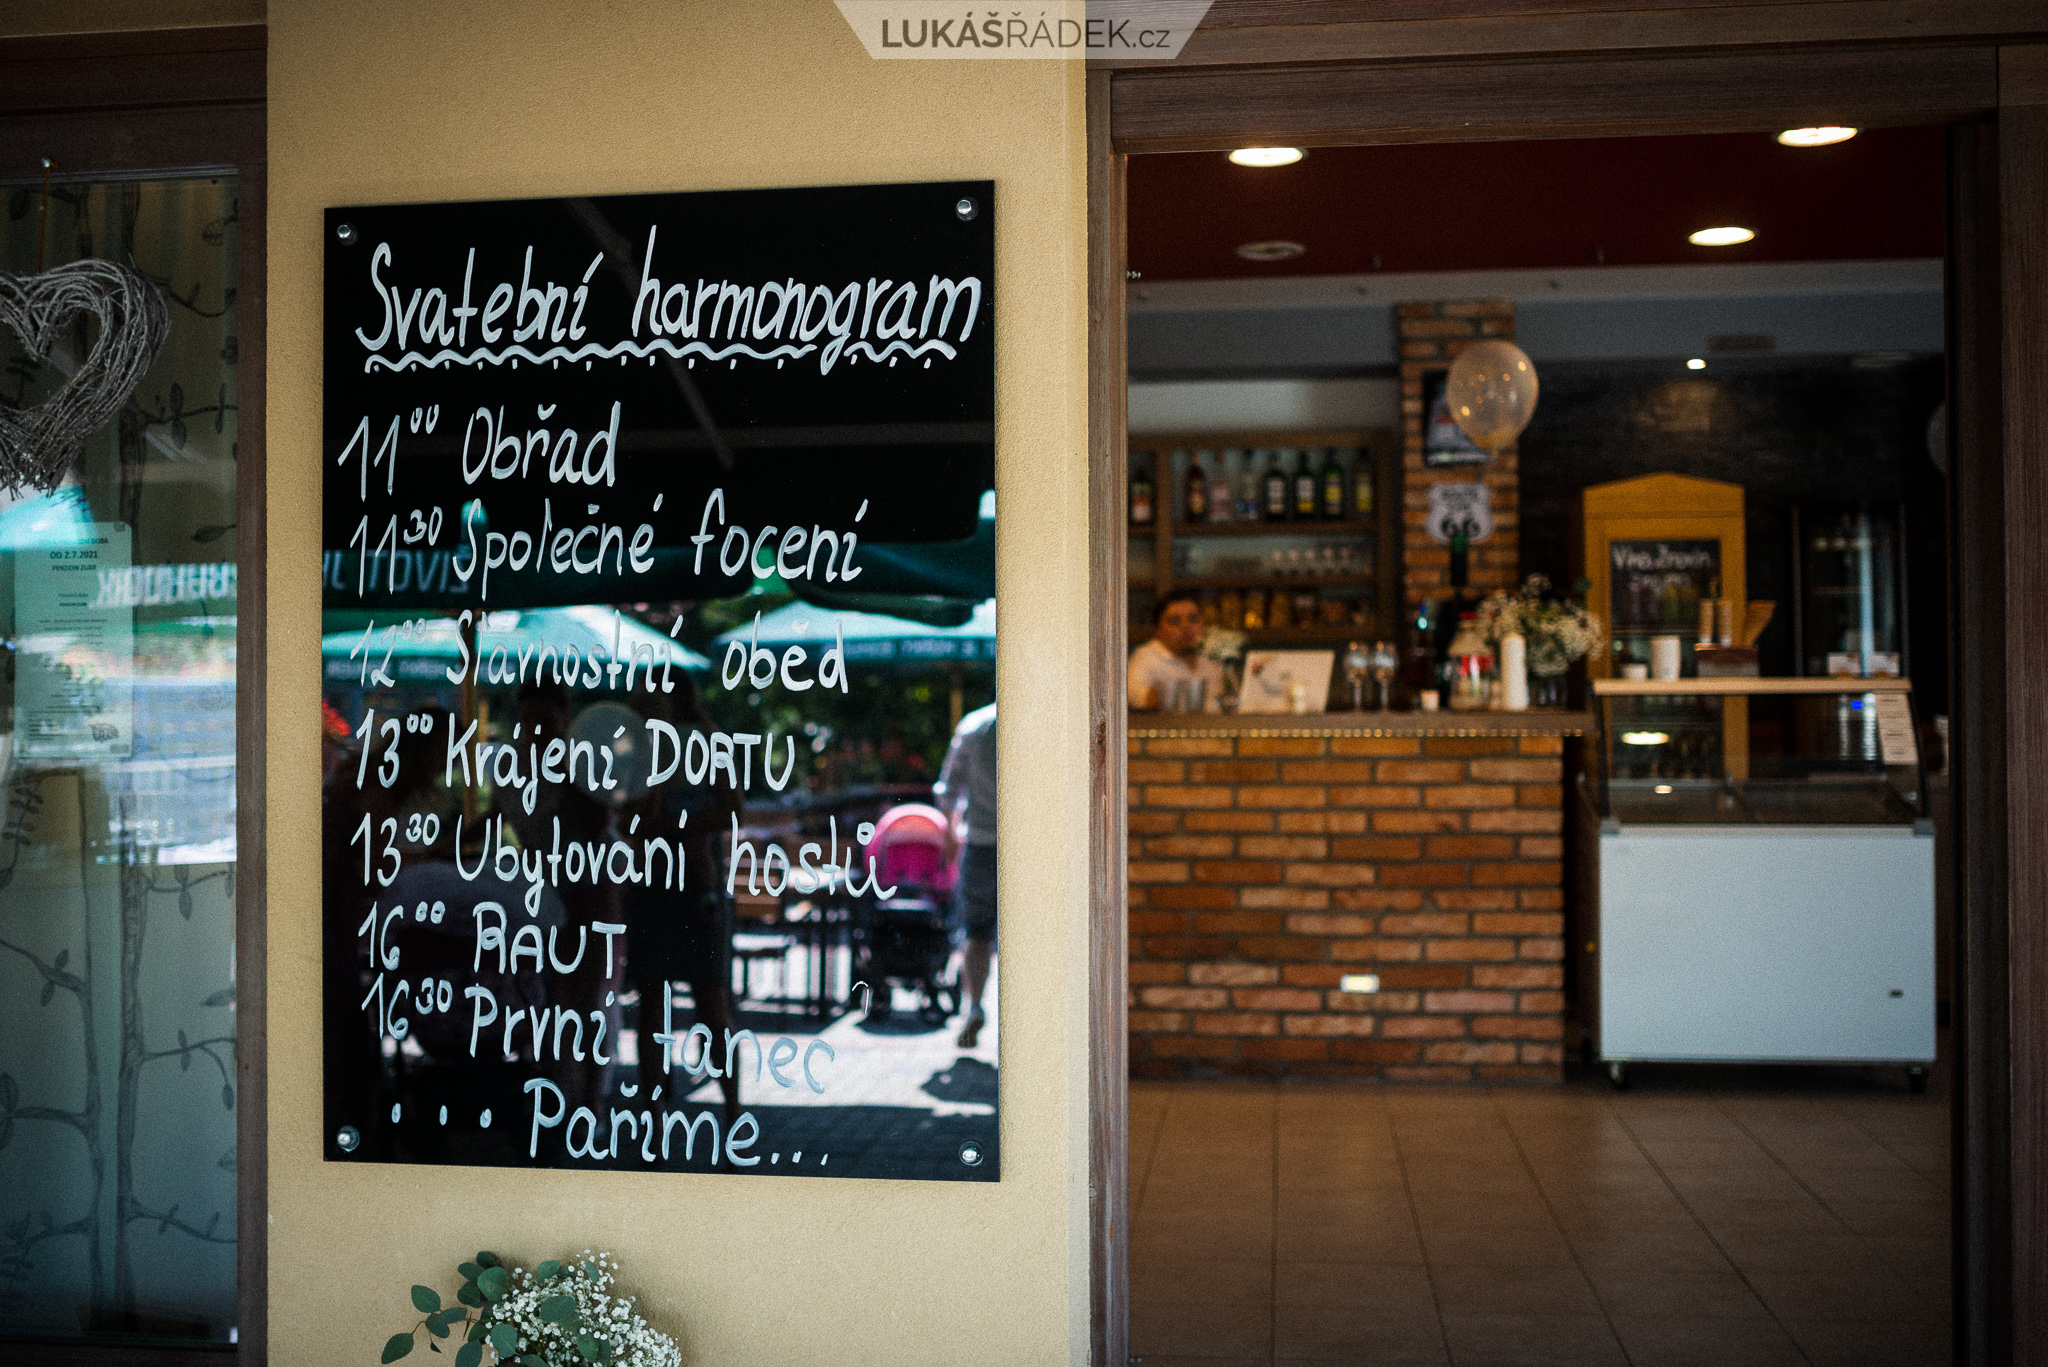 LUKÁŠŘÁDEK.cz
Svatební harmonogram
11⁰⁰ Obřad
11³⁰ Společné focení
12⁰⁰ Slavnostní oběd
13⁰⁰ Krájení DORTU
13³⁰ Ubytování hostů
16⁰⁰ RAUT
16³⁰ První tanec
... Paříme...
OD 2.7.2021
66